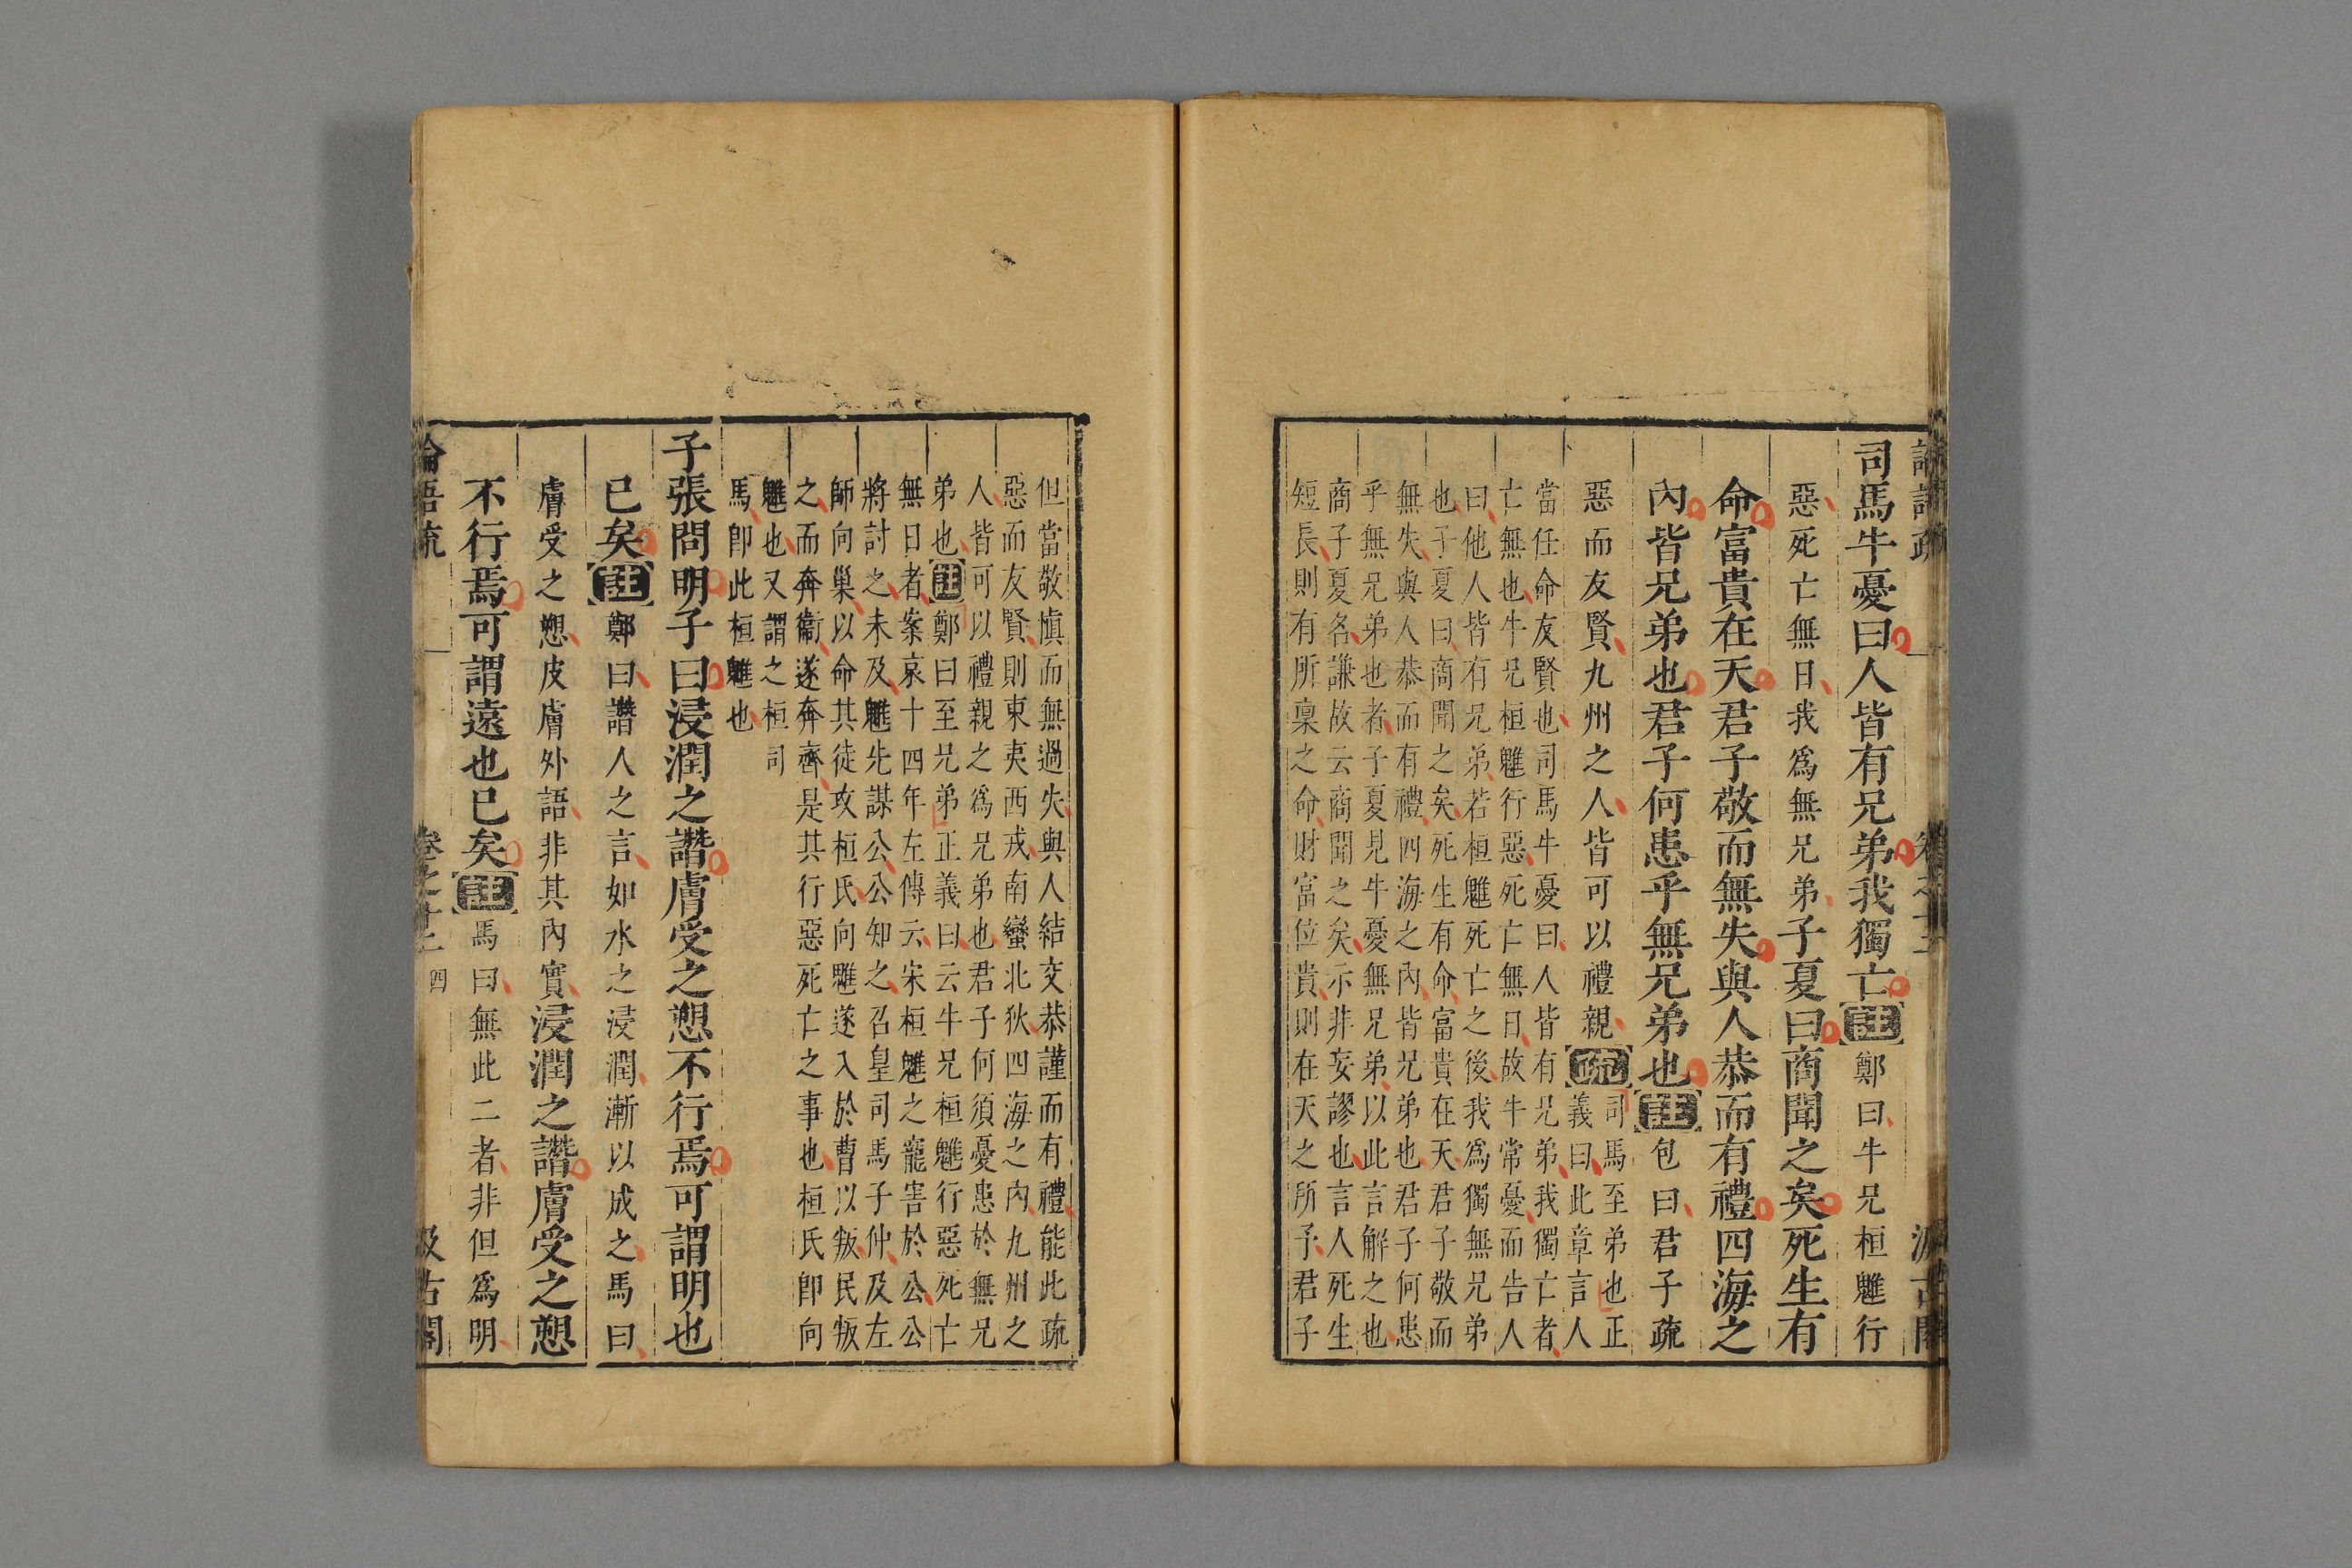 司馬牛憂曰人皆有兄弟我獨亡註鄭曰牛兄桓魋行
惡死亡無日我爲無兄弟子夏曰商聞之矣死生有
命富貴在天君子敬而無失與人恭而有禮四海之
內皆兄弟也君子何患乎無兄弟也註包曰君子疏
惡而友賢九州之人皆可以禮親疏
司馬至弟也正
義曰此章言人
當任命友賢也司馬牛憂曰人皆有兄弟我獨亡者
亡無也牛兄桓魋行惡死亡無日故牛常憂而告人
曰他人皆有兄弟若桓魋死亡之後我爲獨無兄弟
也子夏曰商聞之矣死生有命富貴在天君子敬而
無失與人恭而有禮四海之內皆兄弟也君子何患
乎無兄弟也者子夏見牛憂無兄弟以此言解之也
商子夏名謙故云商聞之矣示非妄謬也言人死生
短長則有所稟之命財富位貴則在天之所予君子
但當敬愼而無過失與人結交恭謹而有禮能此疏
惡而友賢則東夷西戎南蠻北狄四海之內九州之
人皆可以禮親之爲兄弟也君子何須憂患於無兄
弟也註鄭曰至兄弟正義曰云牛兄桓魋行惡死亡
無日者案哀十四年左傳云宋桓魋之寵害於公公
將討之未及魋先謀公公知之召皇司馬子仲及左
師向巢以命其徒攻桓氏向魋遂入於曹以叛民叛
之而奔衞遂奔齊是其行惡死亡之事也桓氏卽向
魋也又謂之桓司
馬卽此桓魋也
子張問明子曰浸潤之譖膚受之愬不行焉可謂明也
已矣註鄭曰譖人之言如水之浸潤漸以成之馬曰
膚受之愬皮膚外語非其內實浸潤之譖膚受之愬
不行焉可謂遠也已矣註馬曰無此二者非但爲明
論語疏 卷之十二 四 汲古閣